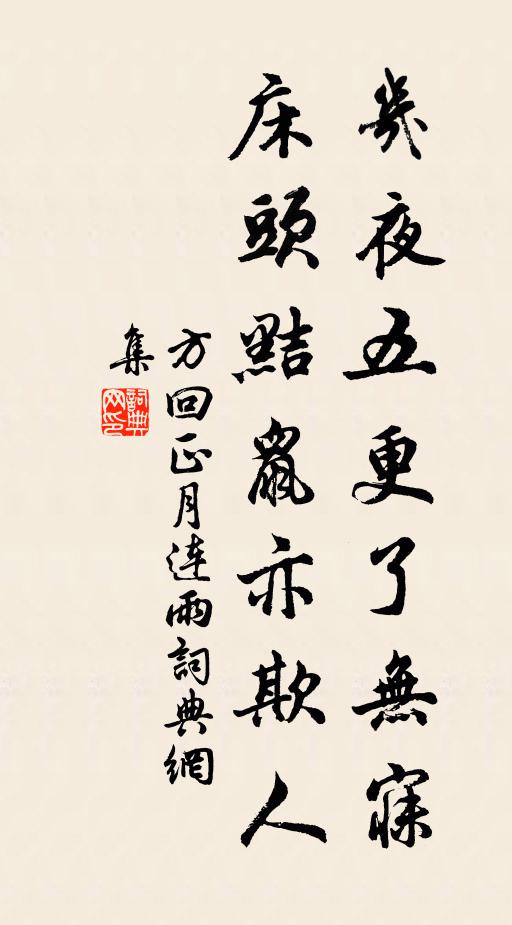 幾夜五更了無寐
床頭黠鼠亦欺人
方回正月連雨詞典網
集
詞典網印